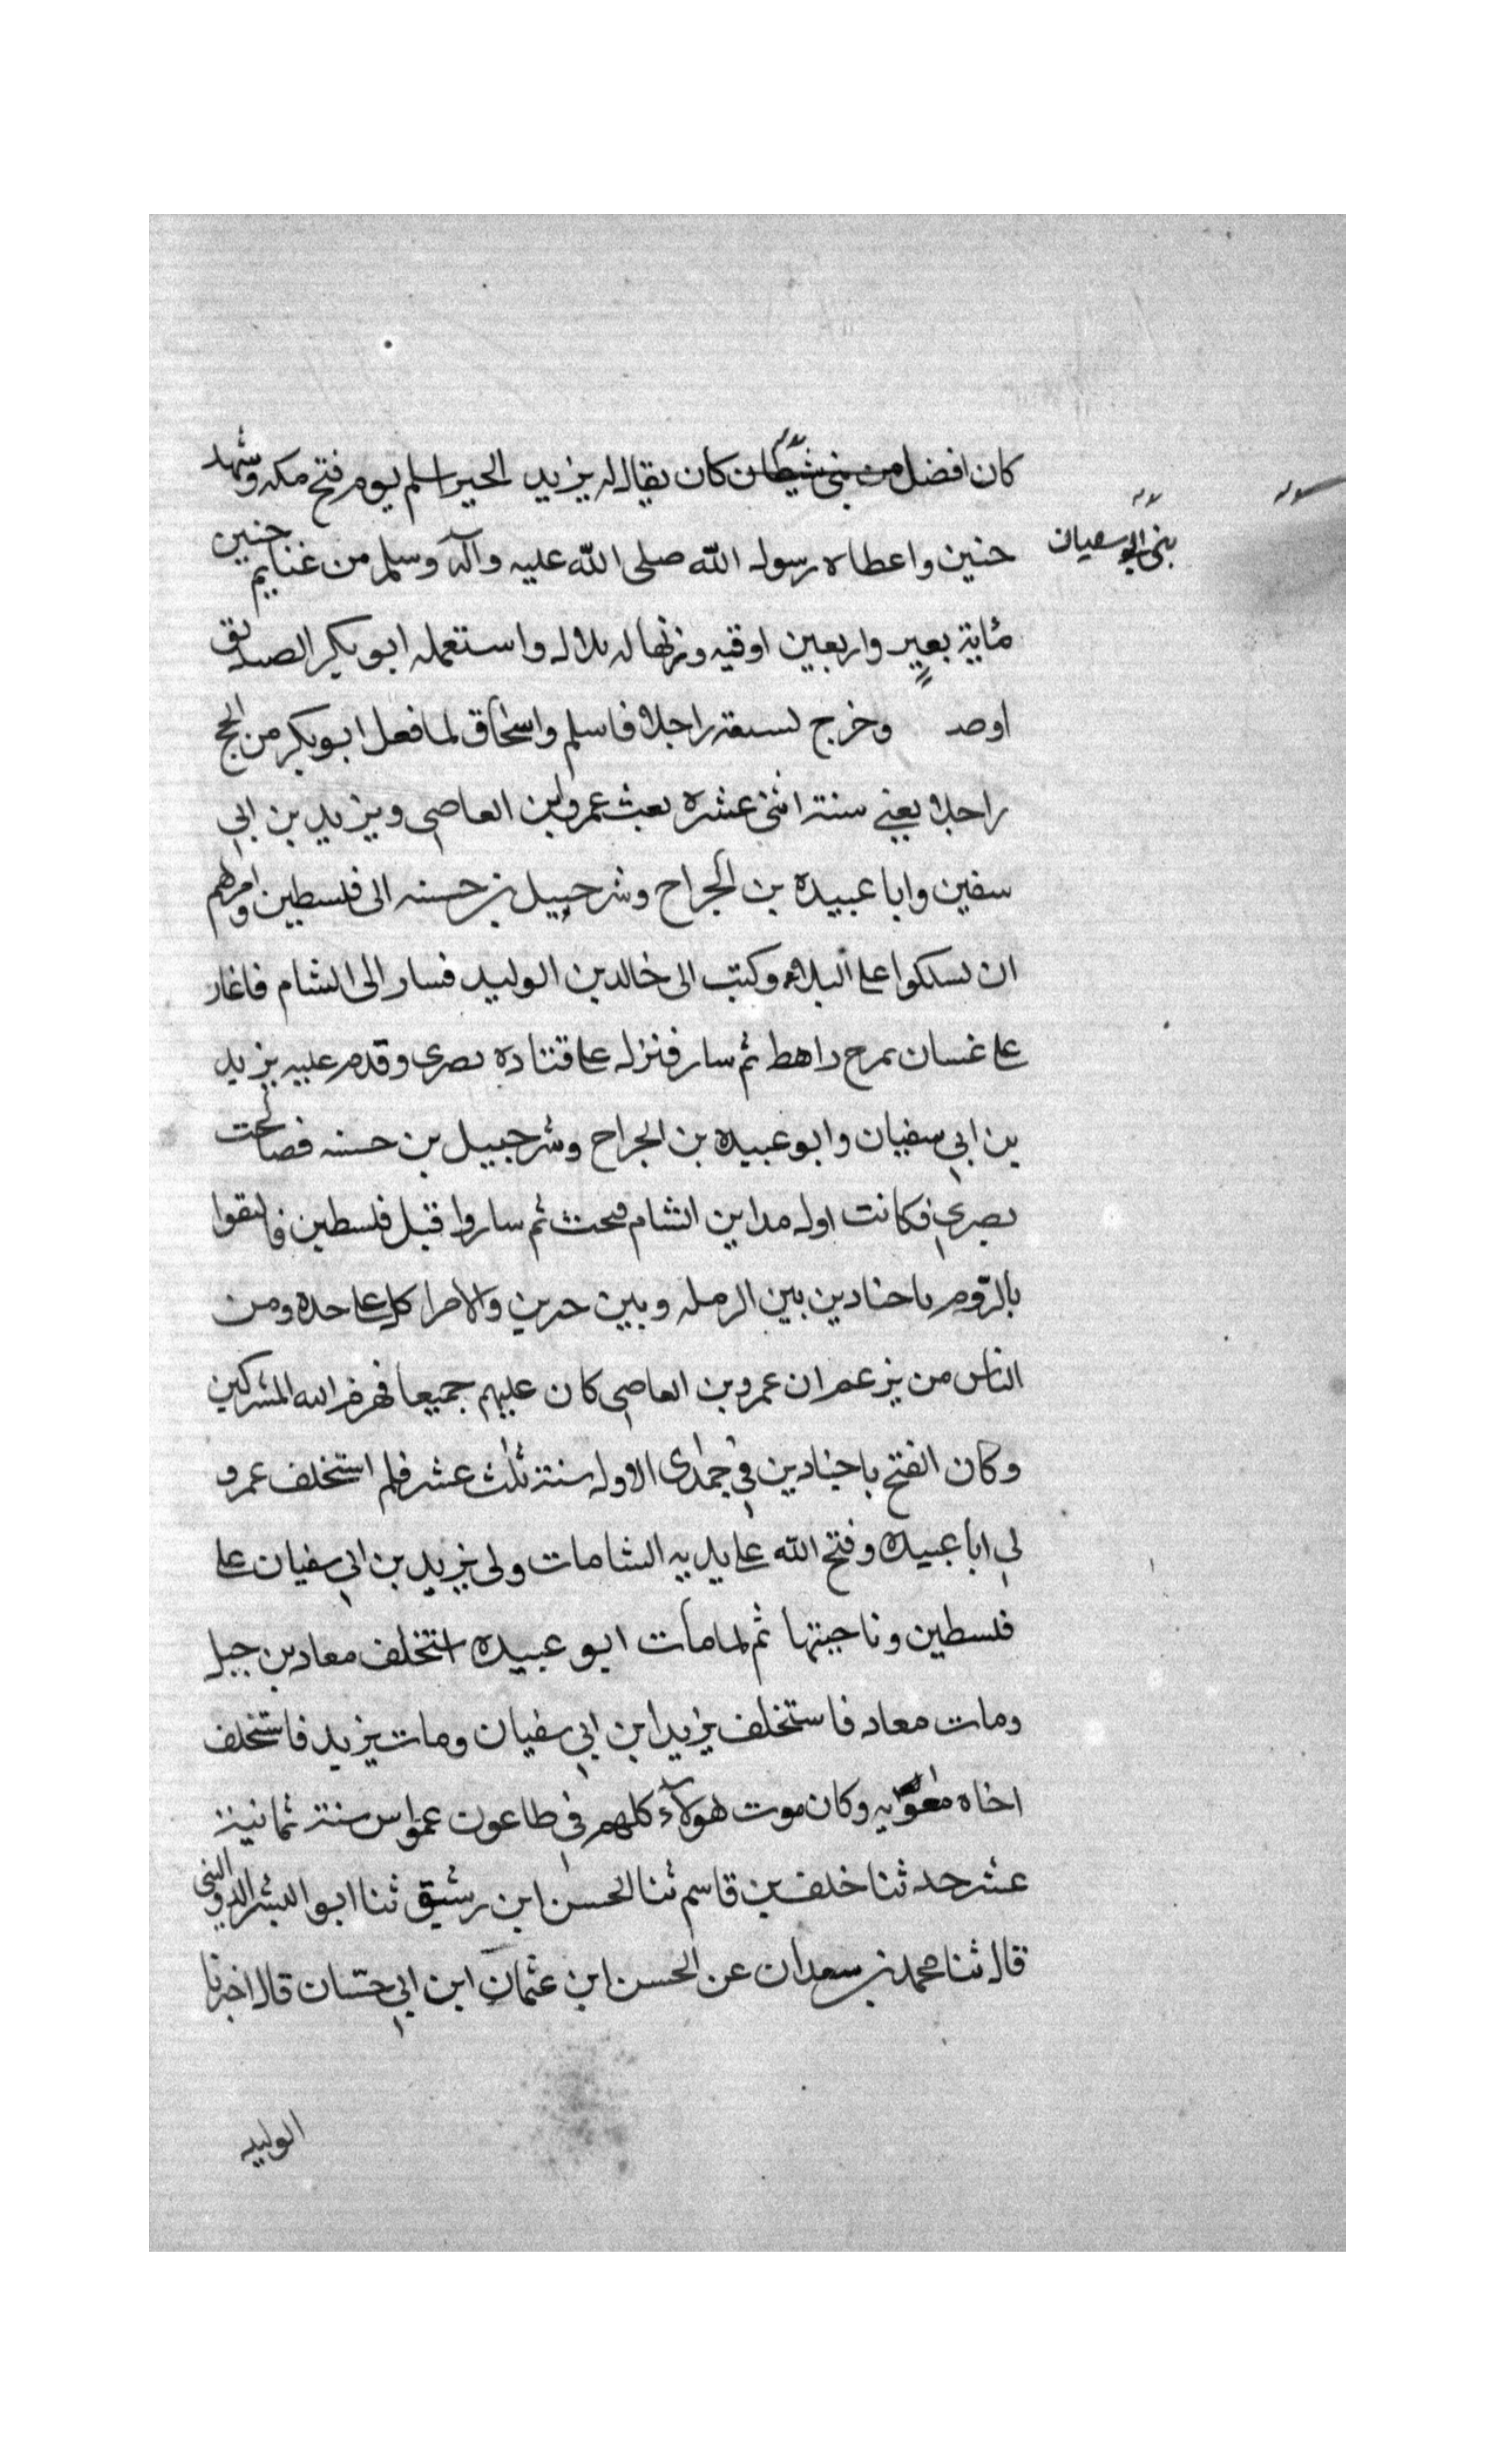 كان افضل من بنى شيطان كان يقال له يزيد الخير اسلم يوم فتح مكه وشهد
بنى ابو سفيان
حنين واعطاه رسول الله صلى الله عليه وآله وسلم من غنايم حنين
مائية بعير واربعين اوقيه وزنها له بلال واستعمله ابو بكر الصديق
اوصد وخرج لسيعته راجلا فاسلم واسحاق لما فعل ابو بكر من الحج
راجلا يعني سنة اثنى عشره بعث عمرو ابن العاصي ويزيد بن ابي
سفين وابا عبيده بن الجراح وشرحبيل بن حسنه الى فلسطين وامرهم
ان يسلكوا على البلاء وكتب الى خالد بن الوليد فسار الى الشام فاغار
على غسان بمرج راهط ثم سار فنزل على قتناده بصرى وقدم عليه يزيد
بن ابي سفيان وابو عبيده بن الجراح وشرحبيل بن حسنه فصالحت
بصرى فكانت اول مداين الشام فتحت ثم ساروا قبل فلسطين فالتقوا
بالروم باجنادين بين الرمله وبين جبرين والامرا كل على حده ومن
الناس من يزعم ان عمرو بن العاصي كان عليهم جميعا فهزم الله المشركين
وكان الفتح باجنادين في جمادى الاول سنة ثلث عشر فلم استخلف عمرو
لي ابا عبيده وفتح الله على يديه الشامات ولى يزيد بن ابي سفيان على
فلسطين وناحيتها ثم لما مات ابو عبيده استخلف معاد بن جبل
ومات معاد فاستخلف يزيد ابن ابي سفيان ومات يزيد فاستخلف
اخاه معويه وكان موت هولآء كلهم في طاعون عمواس سنة ثمانية
عشر حدثنا خلف بن قاسم ثنا الحسن ابن رشيق ثنا ابو البشر الدولابي
قال ثنا محمد بن سعدان عن الحسن ابن عثمان ابن ابي حسان قال اخبرنا
الوليد